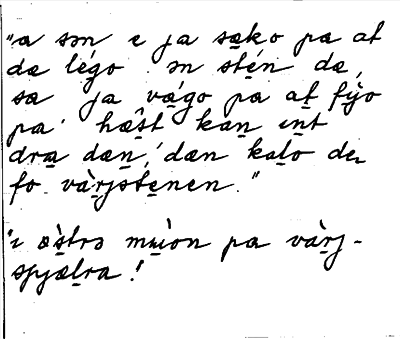 "a sɔn e ja sa̱ko pa at
da légo ɔn sté̱n da,
sa ja va̱go pa at̠ fy̱o
pa' hæ̂s̱t kan̠ ın̠t
dra̱ dæn̠, dæn ka̱lo du
fo vàr̠jste̱nen."
"ı æ̀s̱trɔ mu̱̇on pa vàr̠j-
spjæḻra!"